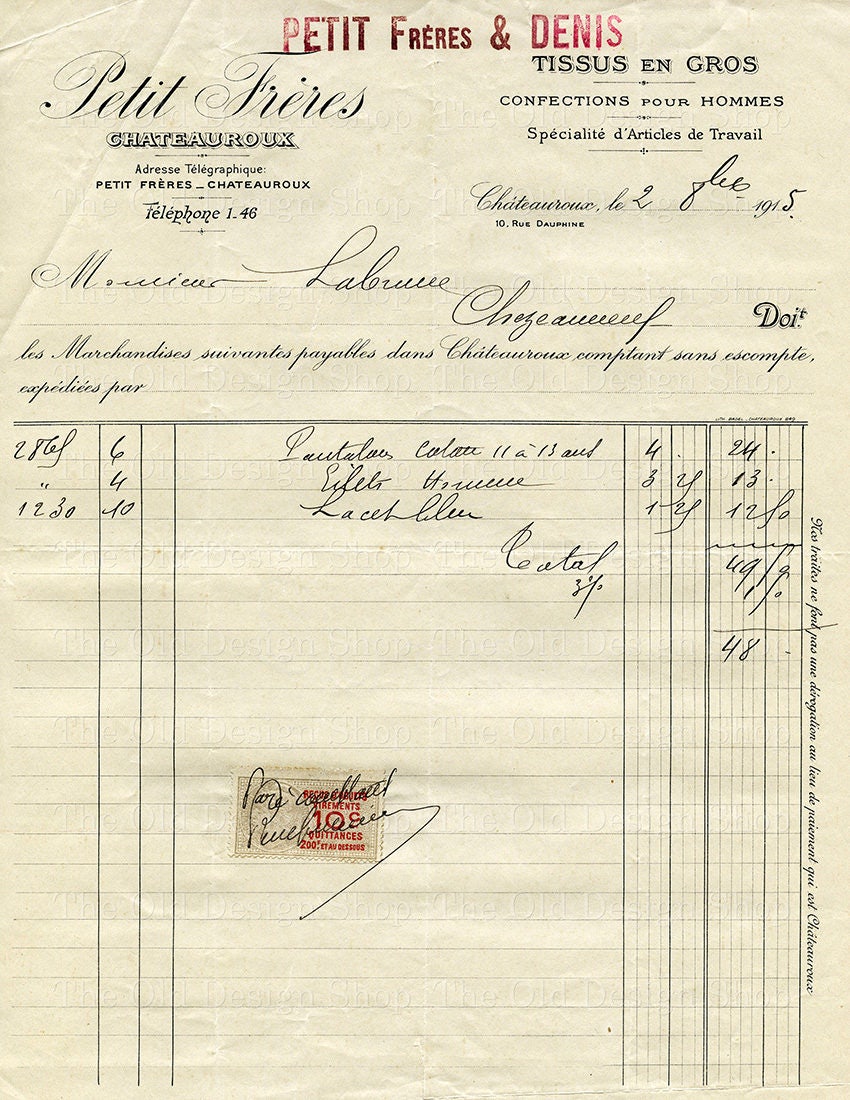 PETIT FRÈRES & DENIS
Petit Frères
CHATEAUROUX
Adresse Télégraphique:
PETIT FRÈRES _ CHATEAUROUX
Téléphone 1-46
TISSUS EN GROS
CONFECTIONS POUR HOMMES
Spécialité d'Articles de Travail
Châteauroux, le 2 8bre 1915.
10, RUE DAUPHINE
Monsieur Labrune
Chezeauneuf
Doit
les Marchandises suivantes payables dans Châteauroux comptant sans escompte,
expédiées par
LITH. BADEL, CHATEAUROUX
6 Pantalons 11 à 13 ans 4 . 24 .
" 4 Gilets Homme 3 25 13 .
1230 10 Lacet bleu 1 25 12 50
Total 49 50
3% 1 50
48 -
Nos traites ne font pas une dérogation au lieu de paiement qui est Châteauroux
10c
QUITTANCES
200f ET AU DESSOUS
The Old Design Shop